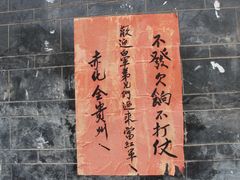 不發欠餉不打仗
歡迎白軍弟兄們過來當紅軍
赤化全貴州